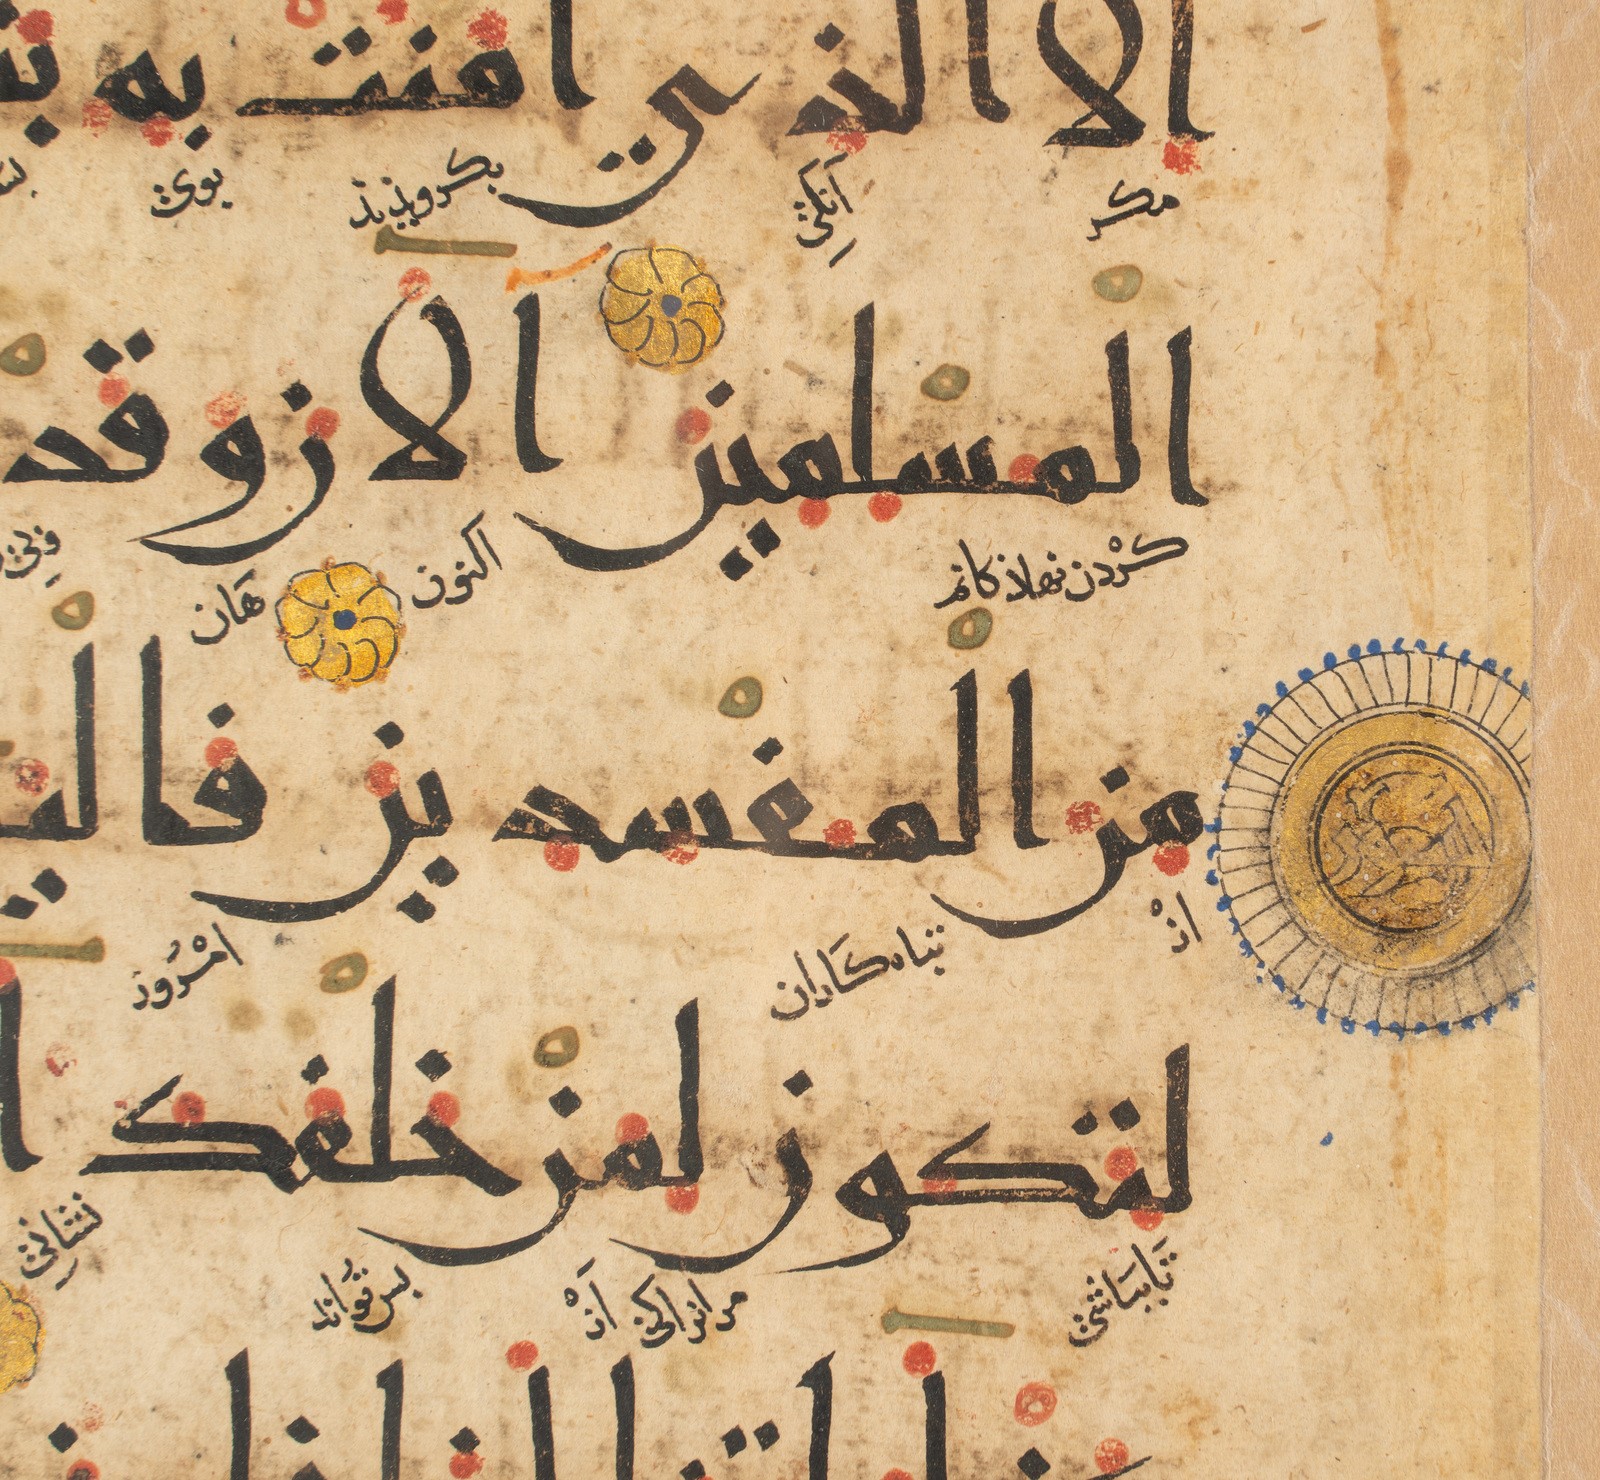 الا الذي امنت به
مكر آنكى بكرويدند بوى
المسلمين الان وقد
كردن نهاذكانم اكنون هان
من المفسدين فاليو
از تباه كاران امروز
لتكون لمن خلفك ا
تا بباشى مر انرا كى از بس تو اند نشانى